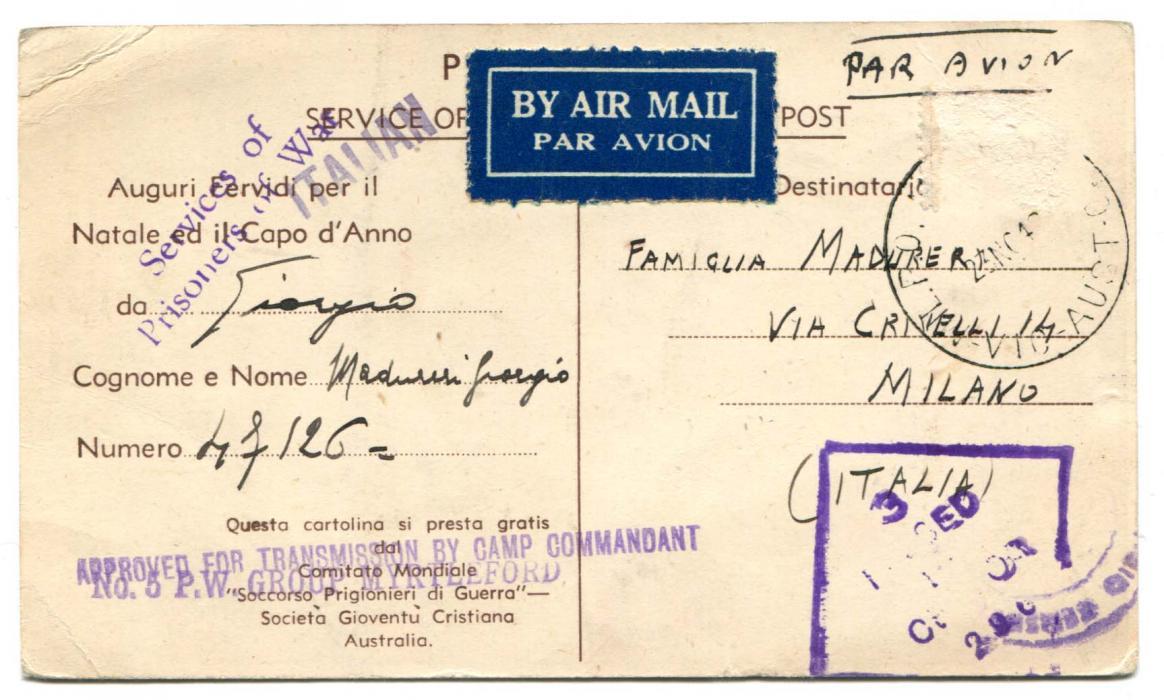 PAR AVION
BY AIR MAIL
PAR AVION
SERVICE OF POST
Services of
Prisoners of War
ITALIAN
Auguri Fervidi per il
Natale ed il Capo d'Anno
da Giorgio
Cognome e Nome Madureri Giorgio
Numero 47126=
Questa cartolina si presta gratis
dal
Comitato Mondiale
"Soccorso Prigionieri di Guerra"—
Società Gioventù Cristiana
Australia.
APPROVED FOR TRANSMISSION BY CAMP COMMANDANT
No. 5 P.W. GROUP MYRTLEFORD
Destinatario
FAMIGLIA MADURERI
VIA CRIVELLI 14
MILANO
(ITALIA)
VIC-AUST
3 ED